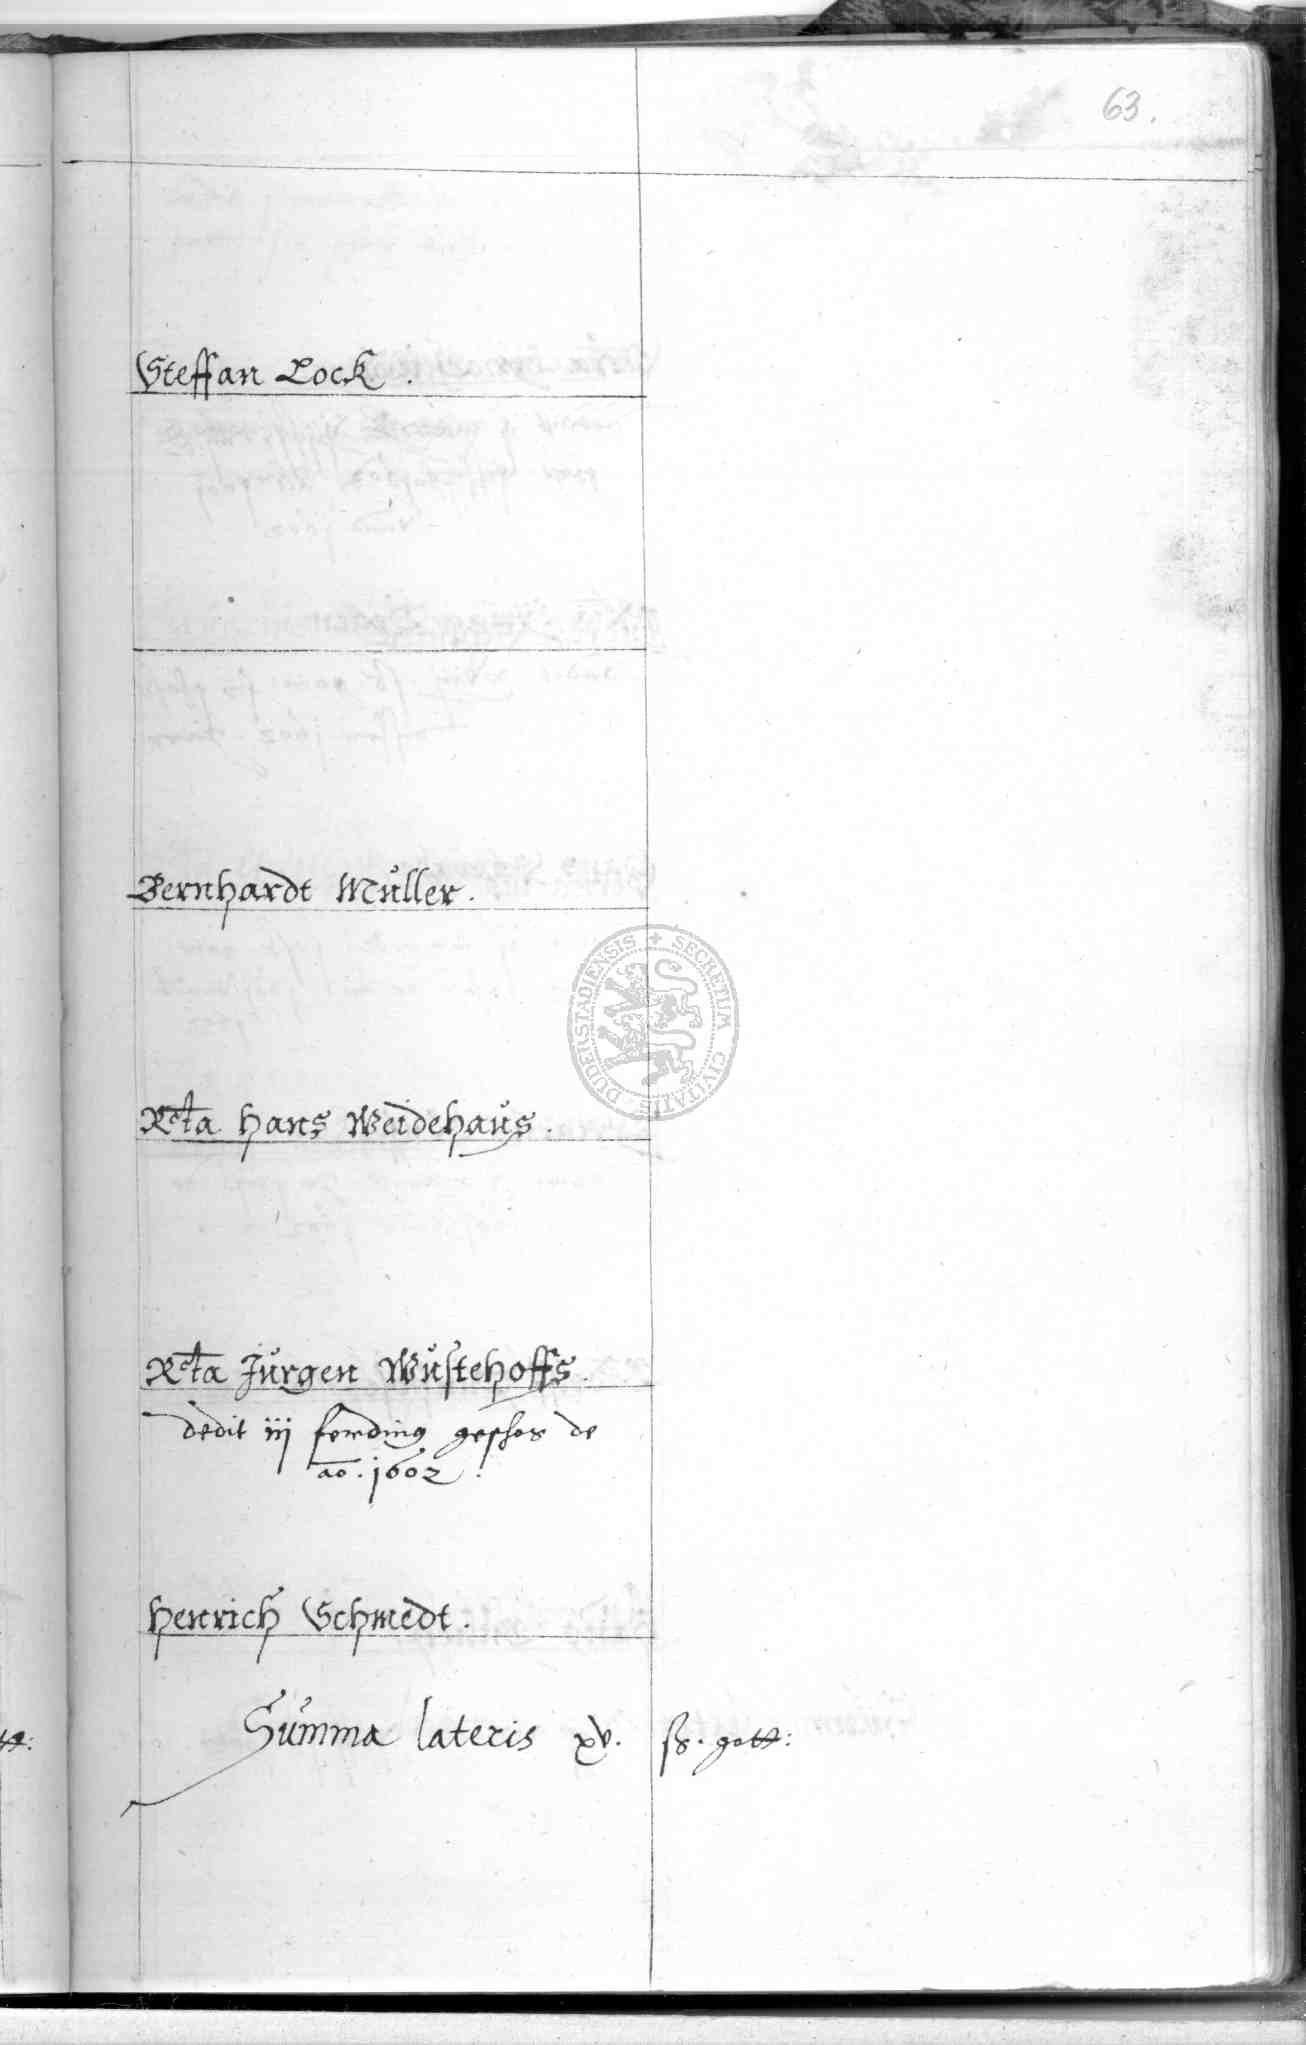 63.
Steffan Lock.
Bernhardt Müller.
Rcta Hans Weidehaus.
Rcta Jurgen Wustehoffs.
dedit iij ferding geschos de
ao. 1602.
Henrich Schmedt.
Summa lateris xv. ß. gott:
SECRETUM CIVITATIS DUDERSTADIENSIS